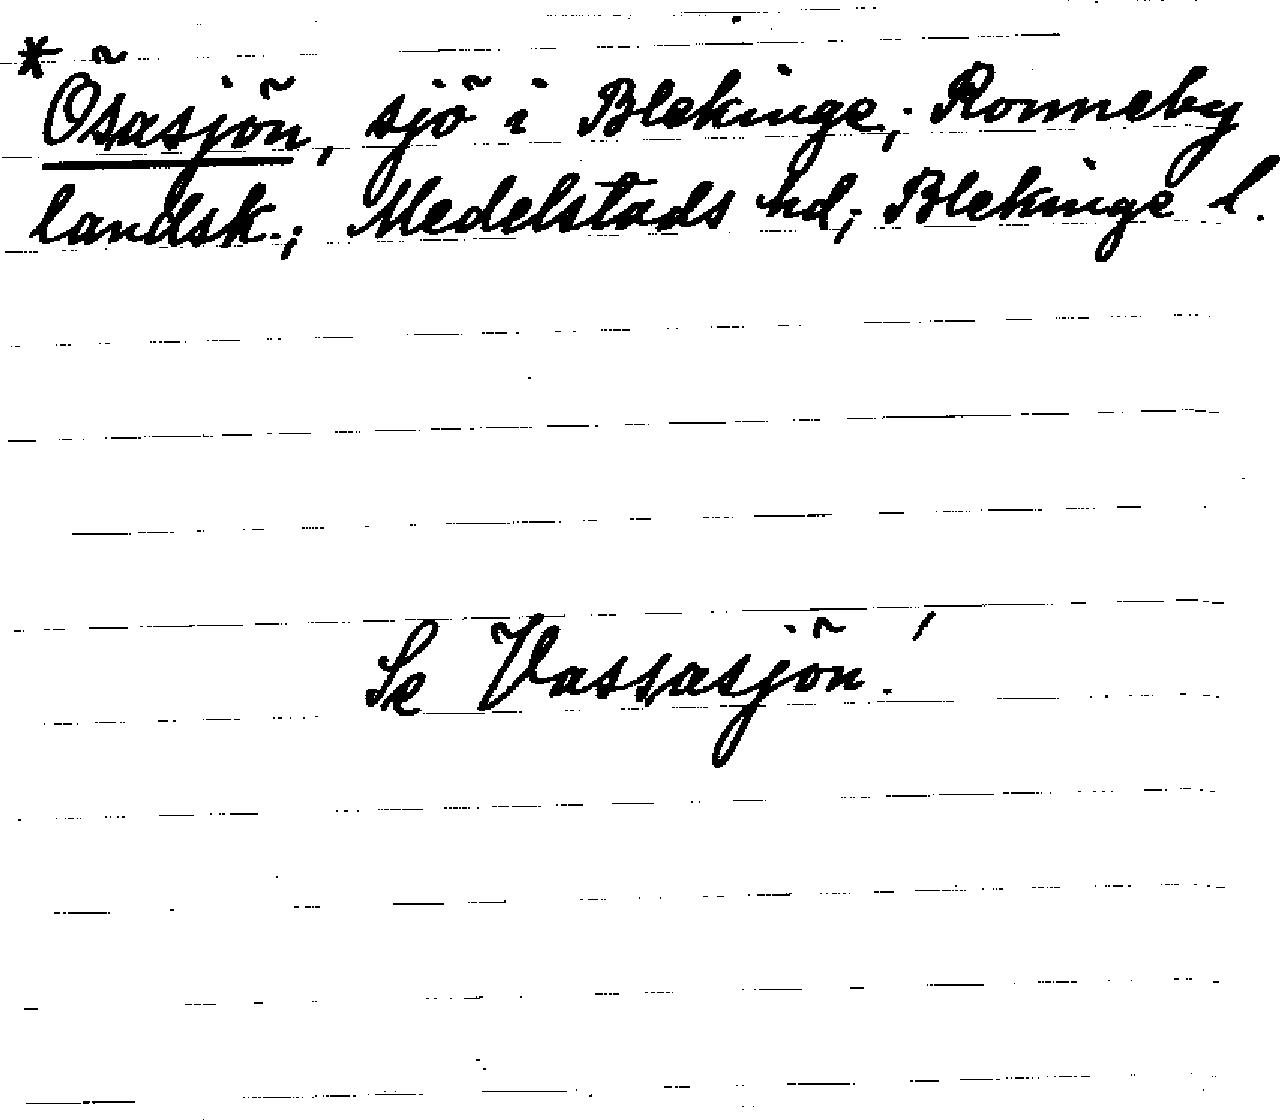 *Ösasjön, sjö i Blekinge; Ronneby
landsk.; Medelstads hd; Blekinge l.
Se Vassasjön!